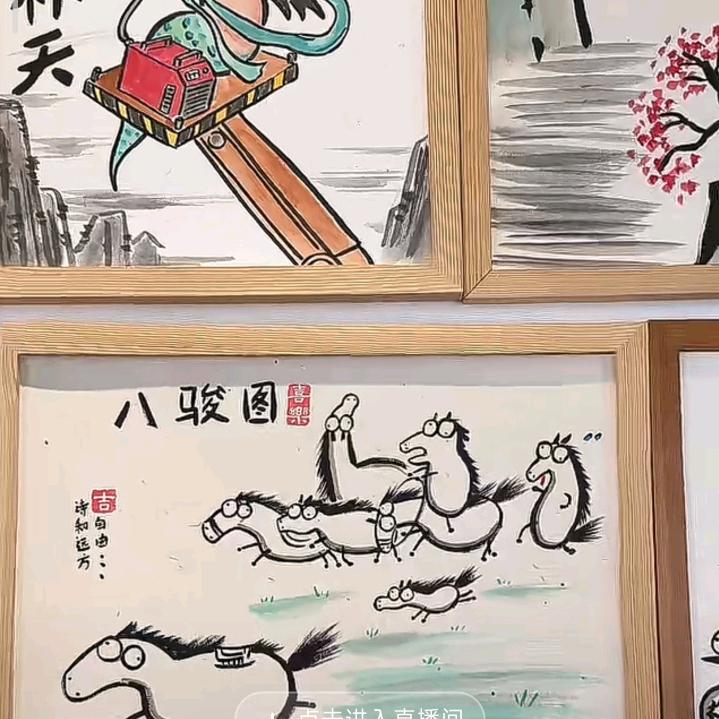 天
八骏图
喜樂
吉
自由...
诗和远方
点击进入直播间